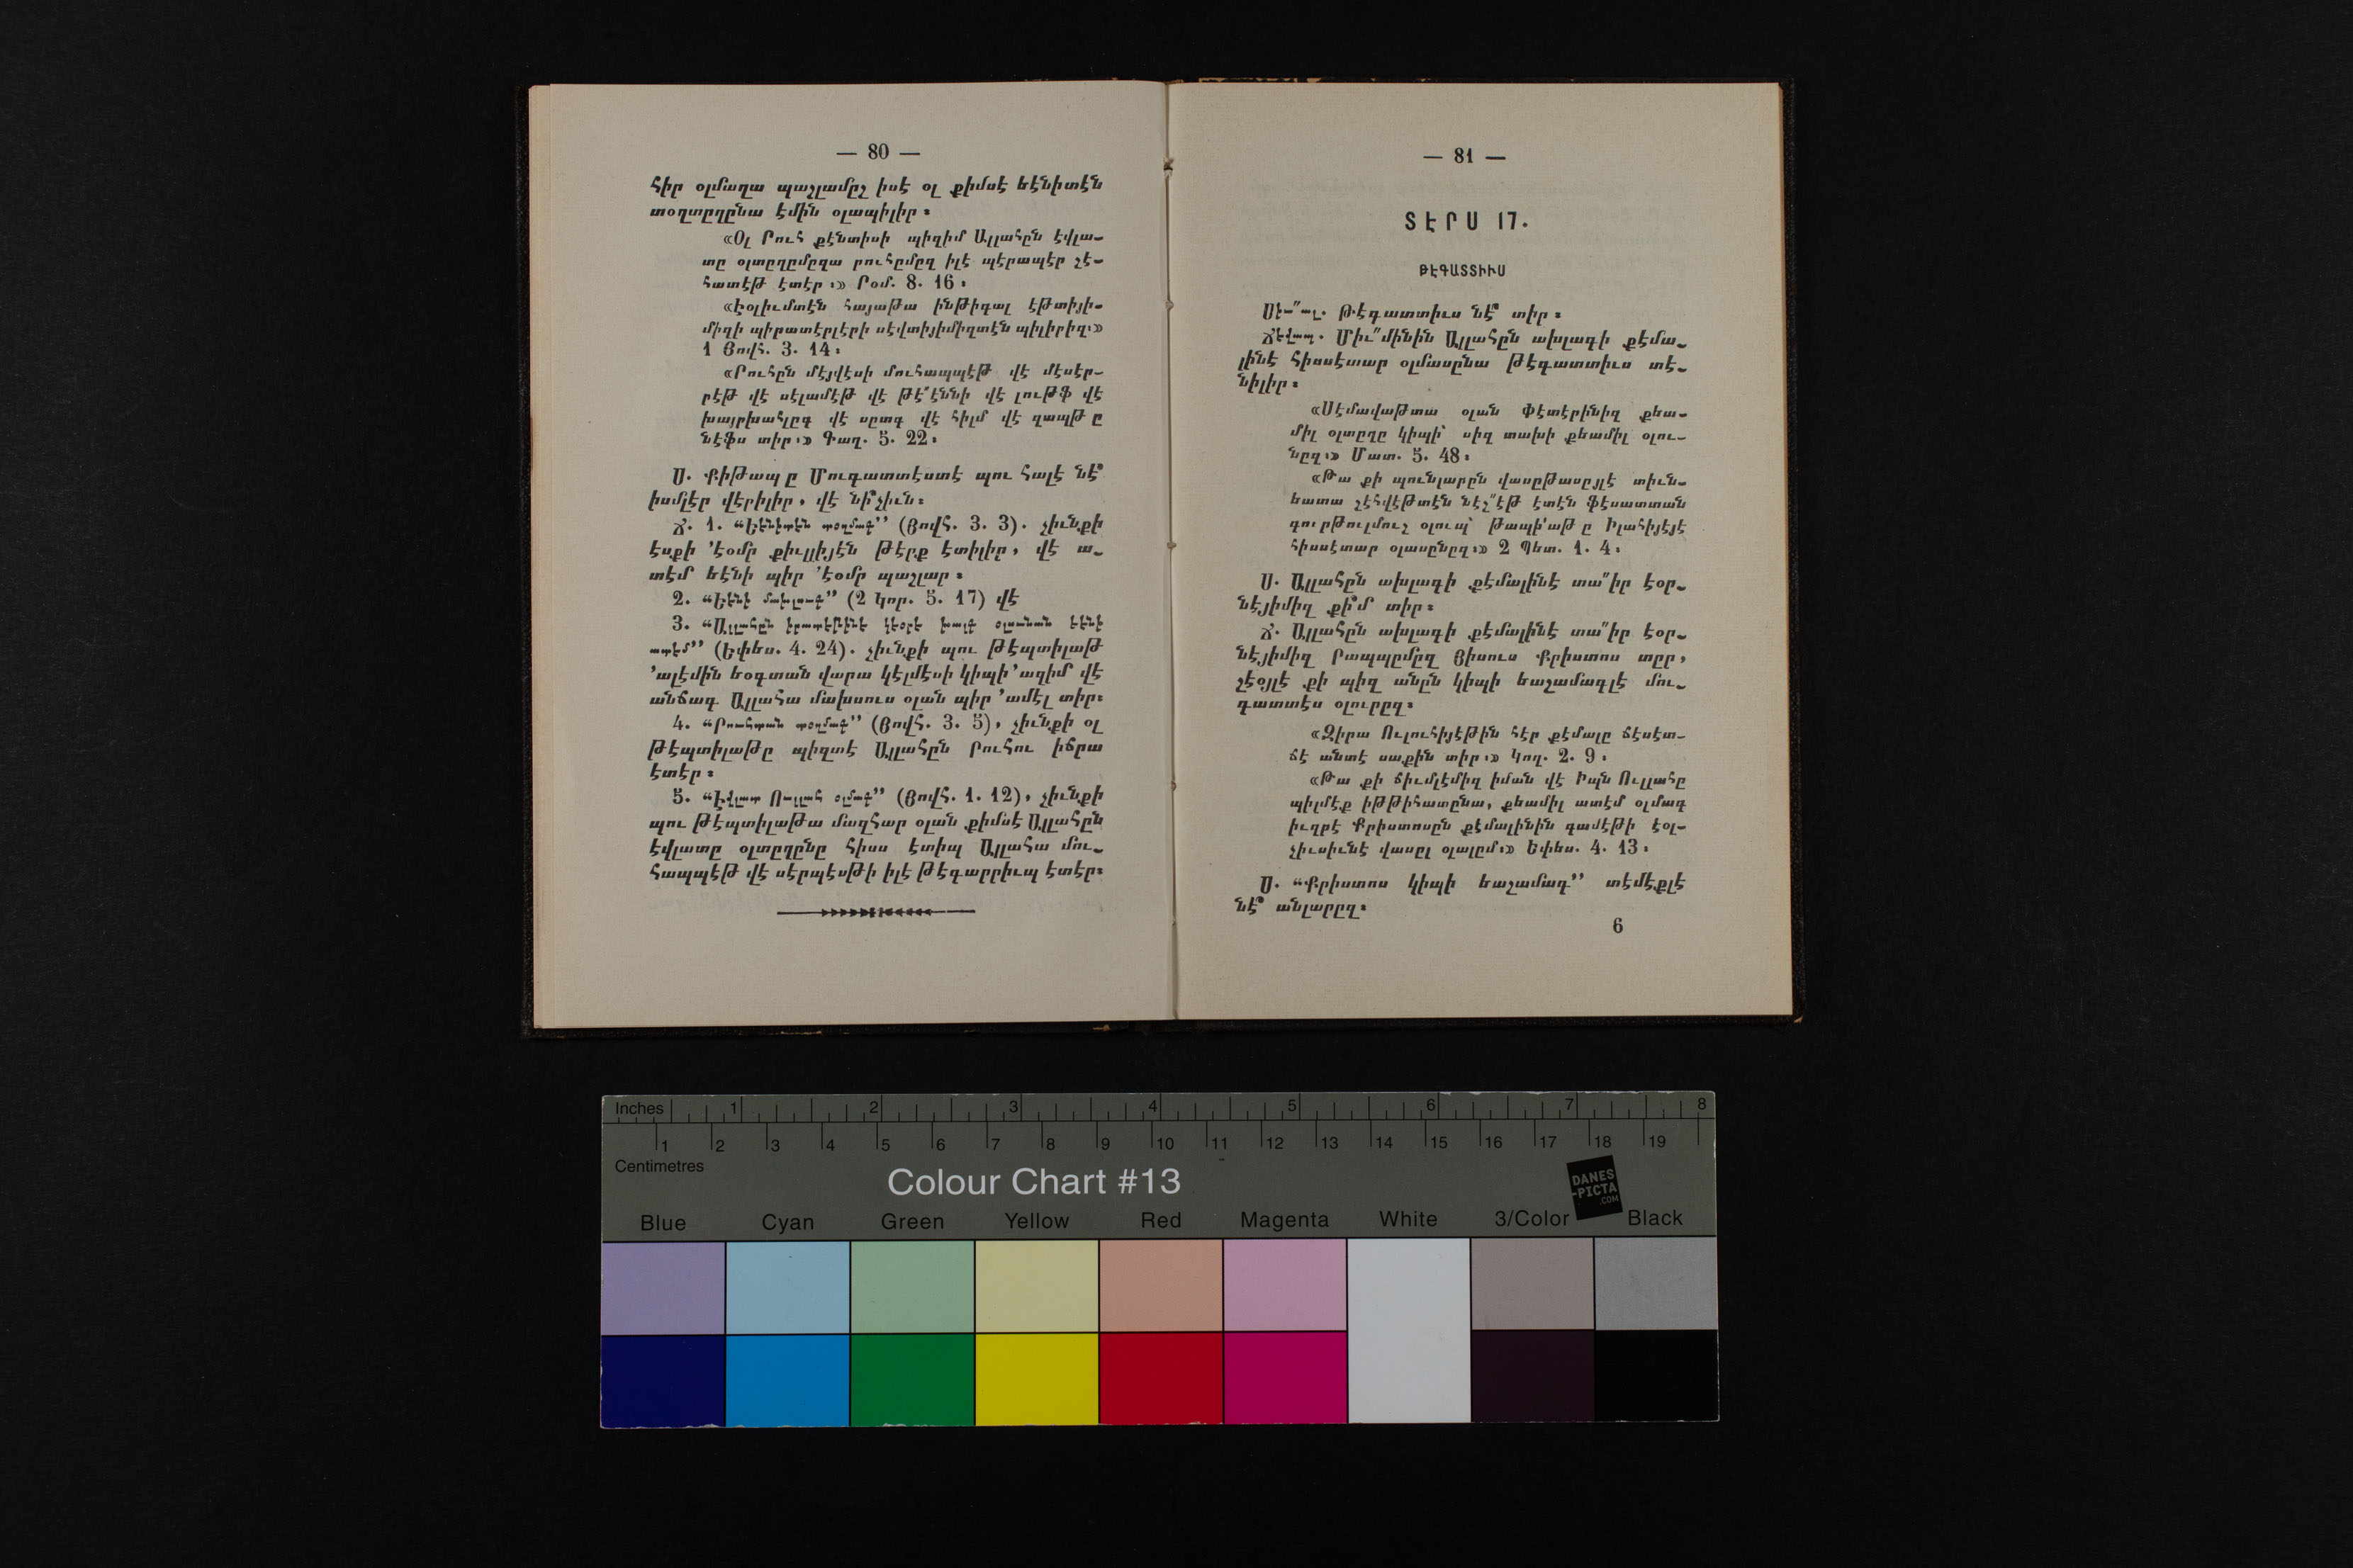 — 80 —
հիր օլմաղա պաշլամըշ իսէ օլ քիմսէ եէնիտէն
տօղտըղընա էմին օլապիլիր։
«Օլ Րուհ քէնտիսի պիզիմ Ալլահըն էվլա-
տը օլտըղըմըզա րուհըմըզ իլէ պէրապէր շէ-
հատէթ էտէր։» Րօմ. 8. 16։
«Էօլիւմտէն հայաթա ինթիգալ էթտիյի-
միզի պիրատէրլէրի սէվտիյիմիզտէն պիլիրիզ։»
1 Յովհ. 3. 14։
«Րուհըն մէյվէսի մուհապպէթ վէ մէսէր-
րէթ վէ սէլամէթ վէ թէ՛էննի վէ լութֆ վէ
խայրխահլըգ վէ սըտգ վէ հիլմ վէ զապթ ը
նէֆս տիր։» Գաղ. 5. 22։
Ս. Քիթապ ը Մուգատտէստէ պու հալէ նէ՞
իսմլէր վէրիլիր, վէ նի՞չիւն։
Ճ. 1. “Եէնիտէն տօղմագ” (Յովհ. 3. 3). չիւնքի
էսքի ՚էօմր քիւլլիյէն թէրք էտիլիր, վէ ա-
տէմ եէնի պիր ՚էօմր պաշլար։
2. “Եէնի մախլուգ” (2 Կոր. 5. 17) վէ
3. “Ալլահըն իրատէսինէ կէօրէ խալգ օլունան եէնի
ատէմ” (Եփես. 4. 24). չիւնքի պու թէպտիլաթ
՚ալէմին եօգտան վարա կէլմէսի կիպի ՚ազիմ վէ
անճագ Ալլահա մախսուս օլան պիր ՚ամէլ տիր։
4. “Րուհտան տօղմագ” (Յովհ. 3. 5), չիւնքի օլ
թէպտիլաթը պիզտէ Ալլահըն Րուհու իճրա
էտէր։
5. “Էվլատ Ուլլահ օլմագ” (Յովհ. 1. 12), չիւնքի
պու թէպտիլաթա մազհար օլան քիմսէ Ալլահըն
էվլատը օլտըղընը հիսս էտիպ Ալլահա մու-
հապպէթ վէ սէրպէսթի իլէ թէգարրիւպ էտէր։
— 81 —
ՏԷՐՍ 17.
ԹԷԳԱՏՏԻՒՍ
Սիւ՚՚ալ. Թէգատտիւս նէ՞ տիր։
Ճէվապ. Միւ՚՚մինին Ալլահըն ախլագի քէմա-
լինէ հիսսէտար օլմասընա թէգատտիւս տէ-
նիլիր։
«Սէմավաթտա օլան Փէտէրինիզ քեա-
միլ օլտըղը կիպի՝ սիզ տախի քեամիլ օլու-
նըզ։» Մատ. 5. 48։
«Թա քի պունլարըն վասըթասըյլէ տիւն-
եատա շէհվէթտէն նէշ՚՚էթ էտէն ֆէսատտան
գուրթուլմուշ օլուպ՝ թապի՚աթ ը Իլահիյէյէ
հիսսէտար օլասընըզ։» 2 Պետ. 1. 4։
Ս. Ալլահըն ախլագի քէմալինէ տա՚՚իր էօր-
նէյիմիզ քի՞մ տիր։
Ճ. Ալլահըն ախլագի քէմալինէ տա՚՚իր էօր-
նէյիմիզ Րապպըմըզ Յիսուս Քրիստոս տըր,
շէօյլէ քի պիզ անըն կիպի եաշամագլէ մու-
գատտէս օլուրըզ։
«Զիրա Ուլուհիյէթին հէր քէմալը ճէսէտ-
ճէ անտէ սաքին տիր։» Կող. 2. 9։
«Թա քի ճիւմլէմիզ իման վէ Իպն Ուլլահը
պիլմէք իթթիհատընա, քեամիլ ատէմ օլմագ
իւզրէ Քրիստոսըն քէմալինին գամէթի էօլ-
չիւսիւնէ վասըլ օլալըմ։» Եփես. 4. 13։
Ս. “Քրիստոս կիպի եաշամագ” տէմէքլէ
նէ՞ անլարըզ։
6
Inches 1 2 3 4 5 6 7 8
1 2 3 4 5 6 7 8 9 10 11 12 13 14 15 16 17 18 19
Centimetres
Colour Chart #13
DANES
-PICTA
.COM
Blue Cyan Green Yellow Red Magenta White 3/Color Black